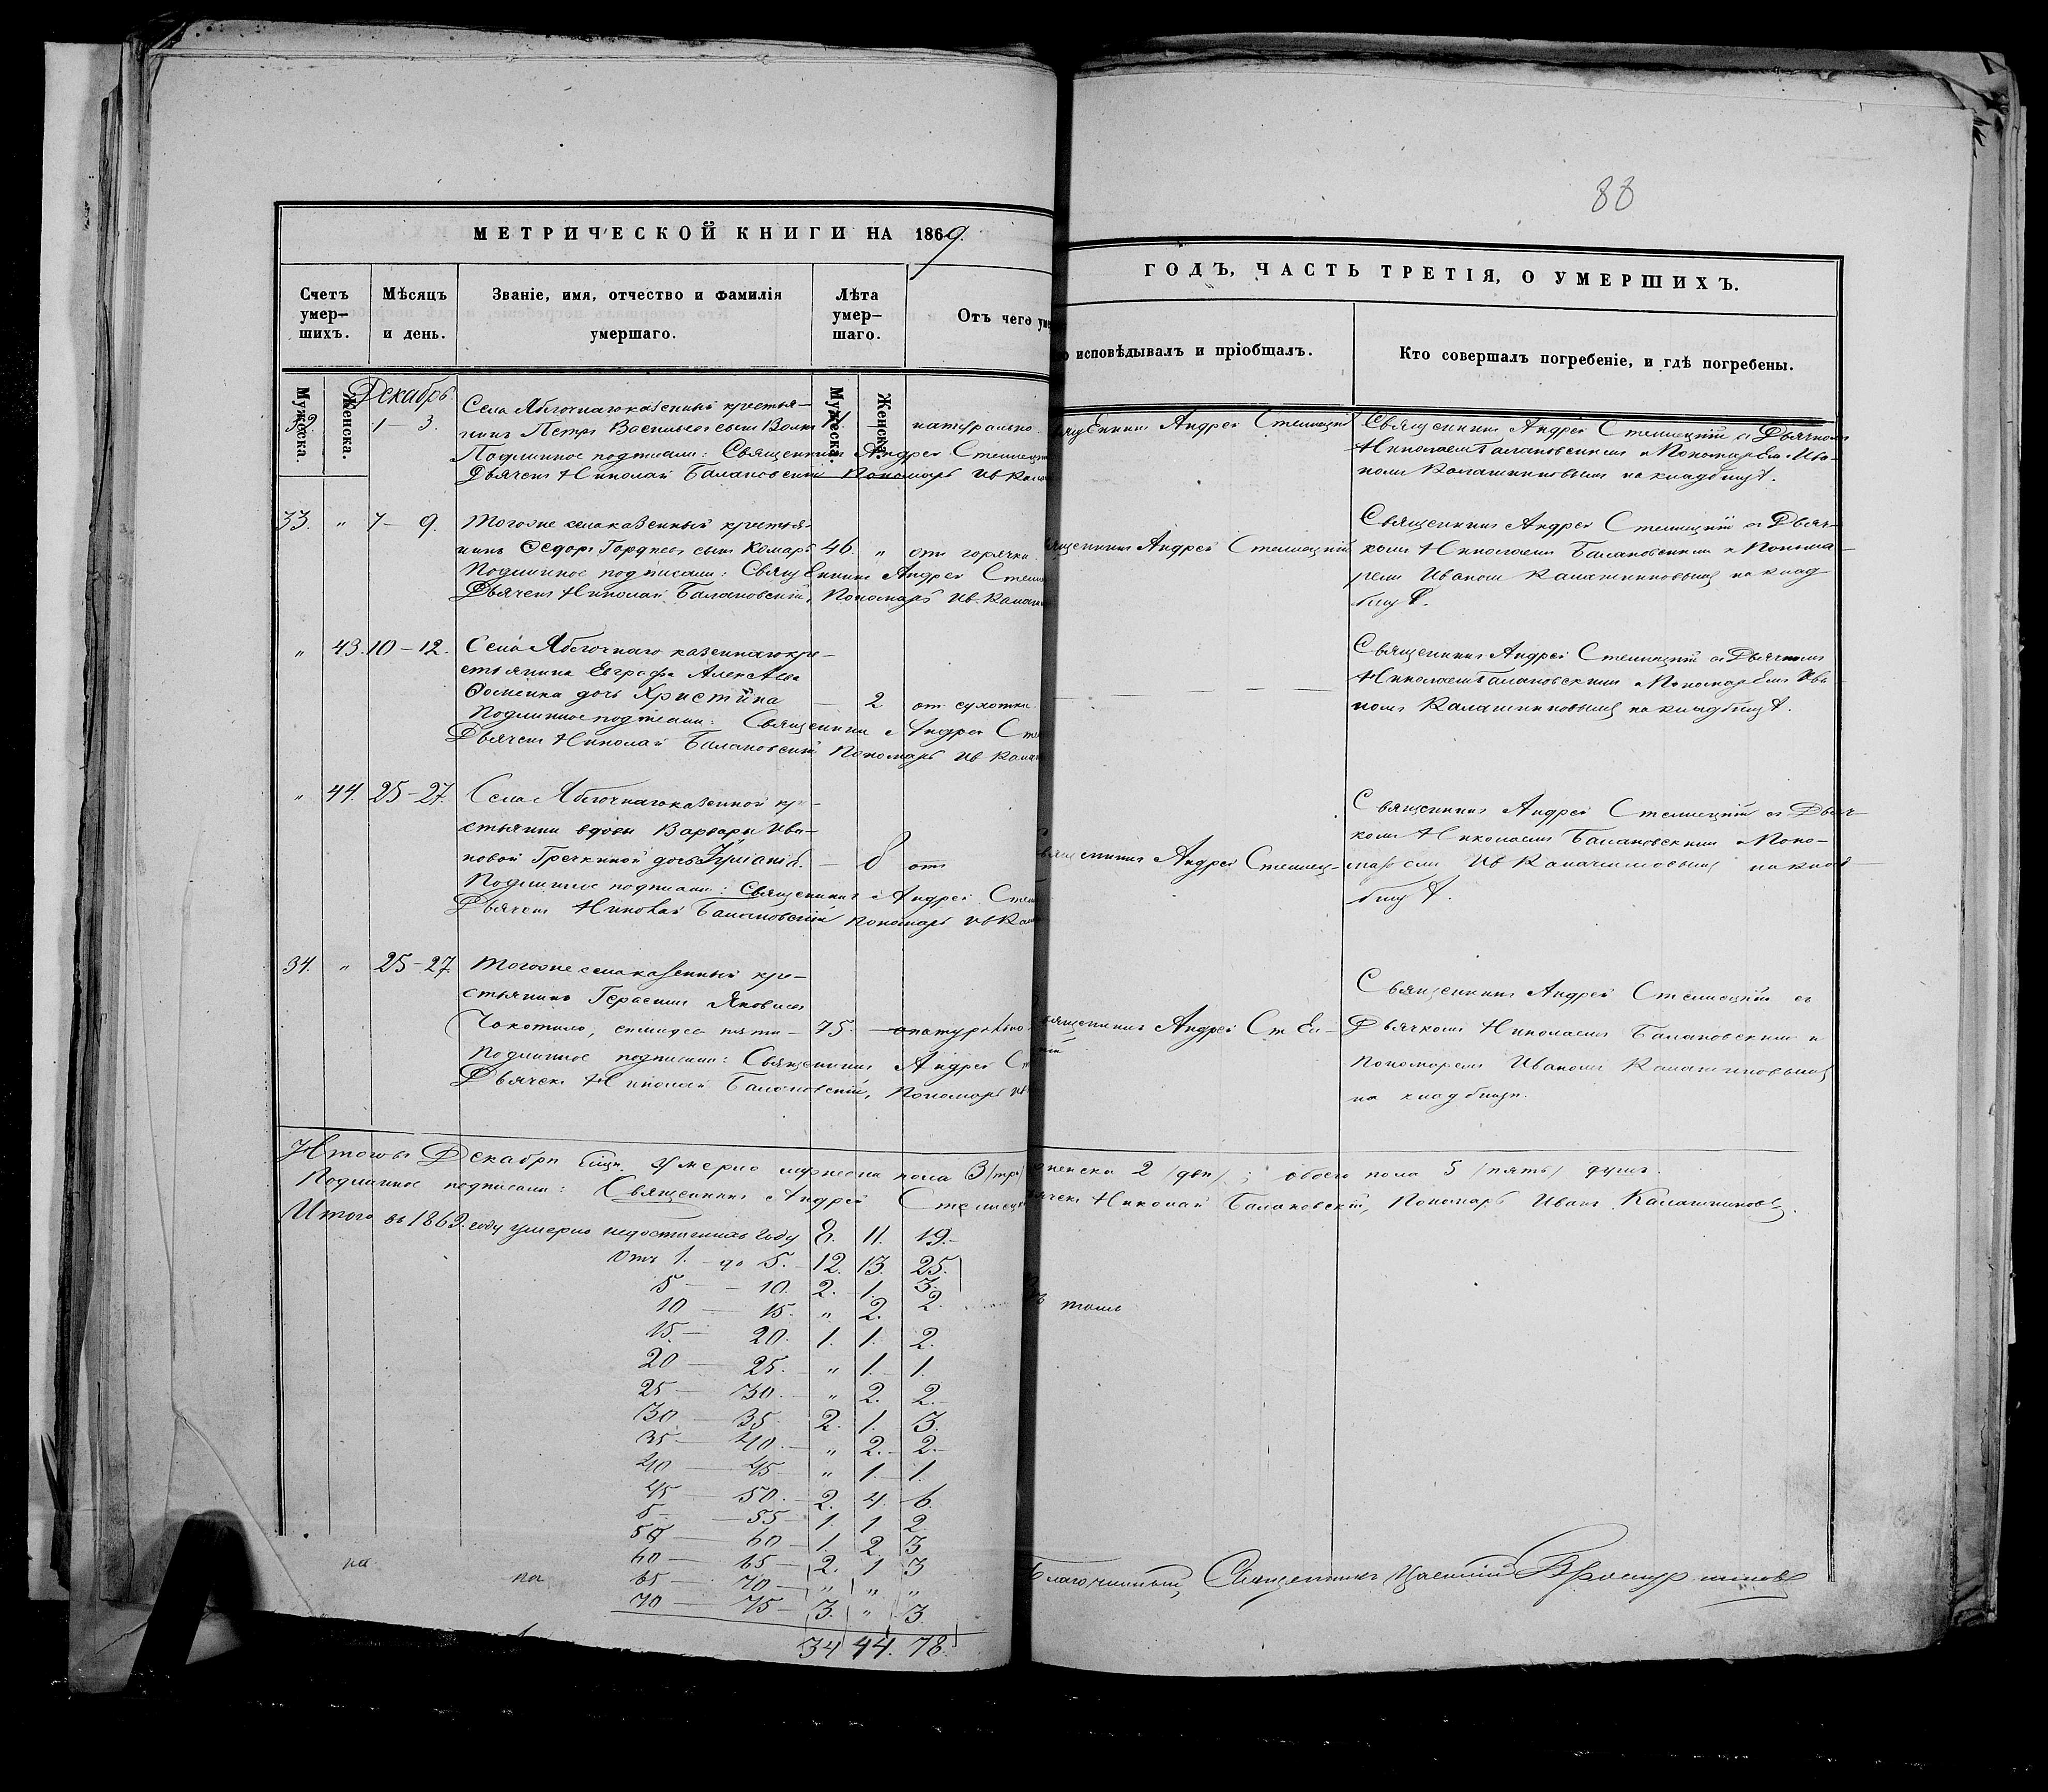 88
МЕТРИЧЕСКОЙ КНИГИ НА 1869.
ГОДЪ, ЧАСТЬ ТРЕТІЯ, О УМЕРШИХЪ.
Счетъ умер-шихъ.
Мѣсяцъ и день.
Званіе, имя, отчество и фамилія умершаго.
Лѣта умер-шаго.
Отъ чего уме
о исповѣдывалъ и пріобщалъ.
Кто совершалъ погребеніе, и гдѣ погребены.
Мужеска.
Женска.
Мужеска.
Женска.
Декабрь.
32. 1 — 3.
Села Яблочнаго казенный крестья-
нинъ Петръ Васильевъ сынъ
натурально.
Священникъ Андрей Стешецкій
Подлинное подписали: Священникъ Андрей
Дьячекъ Николай Балановскій Пономарь Ив
Священникъ Андрей Стешецкій съ Дьячкомъ
Николаемъ Балановскимъ и Пономаремъ Ива-
номъ Калашниковымъ на кладбищѣ.
33. " 7 — 9.
Тогоже села казенный крестья-
нинъ Ѳедоръ Гордѣевъ сынъ Комаръ 46. " отъ горячки.
Священникъ Андрей Стешецкій
Подлинное подписали: Священникъ Андрей
Дьячекъ Николай Балановскій, Пономарь Ив.
Священникъ Андрей Стешецкій съ Дьяч-
комъ Николаемъ Балановскимъ и Понома-
ремъ Иваномъ Калашниковымъ на клад
бищѣ.
" 43. 10 — 12.
Села Яблочнаго казеннаго кре-
стьянина Евграфа Алексѣева
дочь Христина — 2 отъ сухотки.
Подлинное подписали: Священникъ Андрей
Дьячекъ Николай Балановскій Пономарь Ив
Священникъ Андрей Стешецкій съ Дьячкомъ
Николаемъ Балановскимъ и Пономаремъ Ива
номъ Калашниковымъ на кладбищѣ.
" 44. 25 — 27.
Села Яблочнаго казенной кре-
стьянки вдовы Варвары Ива-
новой Гречкиной дочь — 8 отъ
Священникъ Андрей Стешец-
Подлинное подписали: Священникъ Андрей
Дьячекъ Николай Балановскій Пономарь Ив
Священникъ Андрей Стешецкій съ Дьяч-
комъ Николаемъ Балановскимъ и Поно-
маремъ Ив Калашниковымъ на клад-
бищѣ.
34. " 25 — 27.
Тогоже села казенный кре-
стьянинъ Герасимъ Яковлевъ
75. — натурально
Священникъ Андрей Стеш-
Подлинное подписали: Священникъ Андрей
Дьячекъ Николай Балановскій, Пономарь
Священникъ Андрей Стешецкій съ
Дьячкомъ Николаемъ Балановскимъ и
Пономаремъ Иваномъ Калашниковымъ
на кладбищѣ.
Итого въ Декабрѣ мцѣ. умерло мужеска пола 3 (три) женска 2 (двѣ); обоего пола 5 (пять) душъ.
Подлинное подписали: Священникъ Андрей Стешецкій Дьячекъ Николай Балановскій, Пономарь Иванъ Калашниковъ.
Итого въ 1869. году умерло недостигшихъ году 8. 11. 19.
Отъ 1. — до 5. — 12. 13. 25.
5 — 10. 2. 1. 3.
10 — 15. " 2. 2.
15. — 20. 1. 1. 2.
20 — 25. " 1. 1.
25 — 30. " 2. 2.
30 — 35. 2. 1. 3.
35 — 40. " 2. 2.
40 — 45. " 1. 1.
45 — 50. 2. 4. 6.
5 — 55 — 1. 1 2.
55 — 60 — 1. 2. 3
60 — 65 — 2. 1 3
65 — 70 — " " "
70 — 75 — 3. " 3.
34 44. 78.
Благочинный, Священникъ